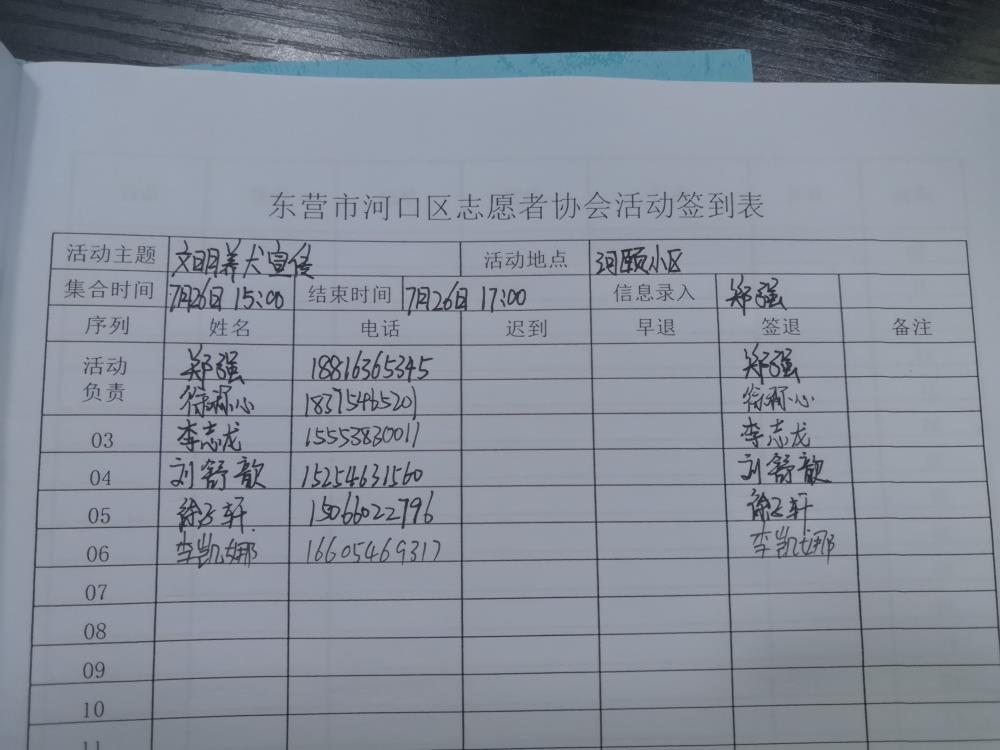 东营市河口区志愿者协会活动签到表
活动主题 文明养犬宣传 活动地点 河颐小区
集合时间 7月26日 15:00 结束时间 7月26日 17:00 信息录入 郑强
序列 姓名 电话 迟到 早退 签退 备注
活动负责 郑强 18816365345 郑强
徐称心 18375465201 徐称心
03 李志龙 15553830011 李志龙
04 刘舒歆 15254631560 刘舒歆
05 徐子轩 15066022796 徐子轩
06 李凯娜 16605469317 李凯娜
07
08
09
10
11